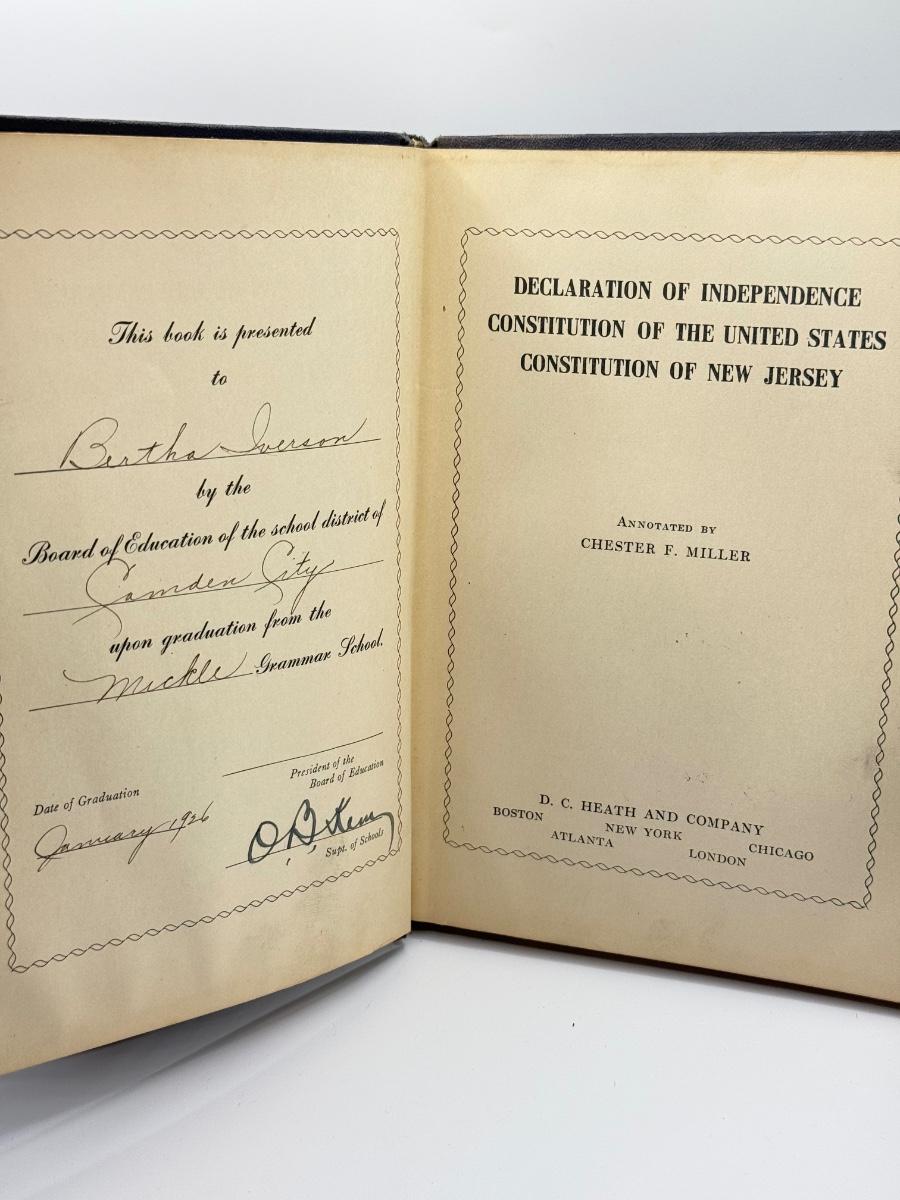 This book is presented
to
Bertha Iverson
by the
Board of Education of the school district of
Camden City
upon graduation from the
Mickle Grammar School.
President of the
Board of Education
Date of Graduation
January 1926
Supt. of Schools
DECLARATION OF INDEPENDENCE
CONSTITUTION OF THE UNITED STATES
CONSTITUTION OF NEW JERSEY
ANNOTATED BY
CHESTER F. MILLER
D. C. HEATH AND COMPANY
BOSTON NEW YORK CHICAGO
ATLANTA LONDON